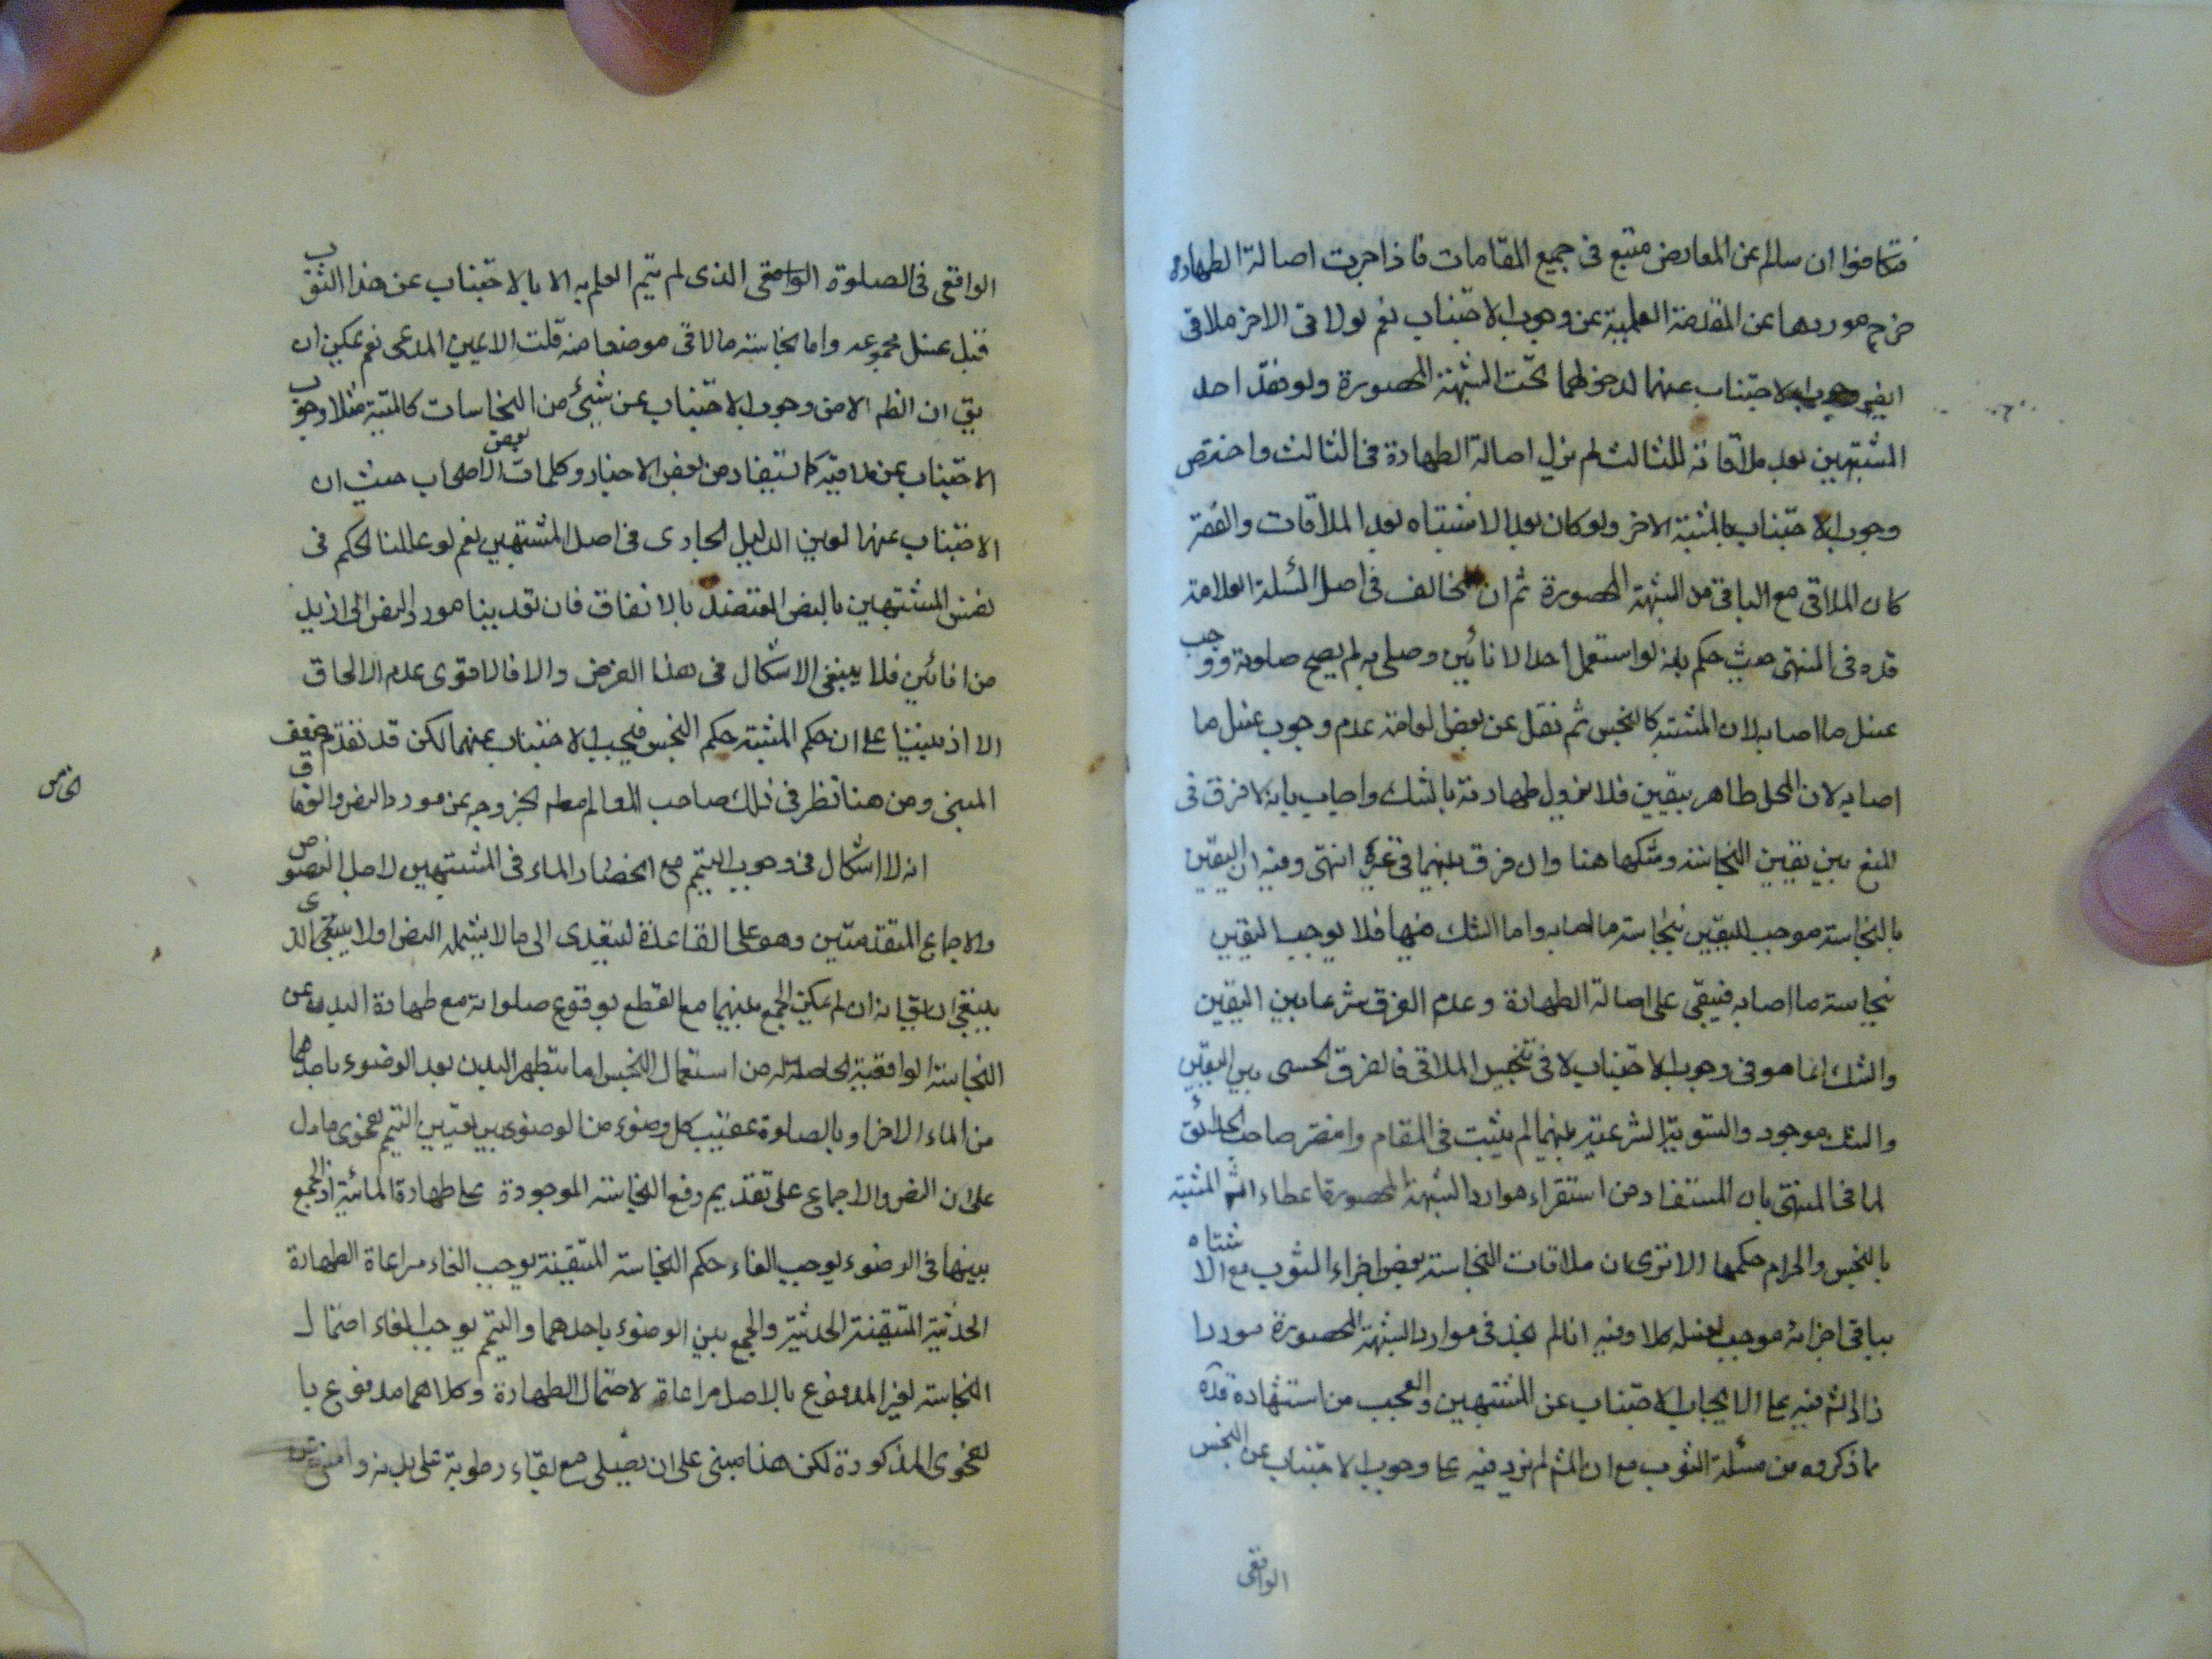 فتكافؤا ان سالم عن المعارض متبع في جميع المقامات فاذا جرت اصالة الطهارة
خرج موردها عن المقدمة العلمية عن وجوب الاجتناب نعم لو لاقى الاخر ملاقي
ايضا وجوب الاجتناب عنهما لدخولهما تحت الشبهة المحصورة ولو فقد احد
المشتبهين بعد ملاقاته للثالث لم نزل اصالة الطهارة في الثالث واختص
وجوب الاجتناب بالمشتبه الاخر ولو كان بعد الاشتباه بعد الملاقات والفقد
كان الملاقي مع الباقي من الشبهة المحصورة ثم ان المخالف في اصل المسئلة العلامة
قده في المنتهى حيث حكم بانه لو استعمل احد الانائين وصلى به لم يصح صلوته ووجب
غسل ما اصابه لان المشتبه كالنجس ثم نقل عن بعض العامة عدم وجوب غسل ما
اصابه لان المحل طاهر بيقين فلا يزول طهارته بالشك واجاب بانه لا فرق في
المنع بين يقين النجاسة وشكها هنا وان فرق بينهما في غيره انتهى وفيه ان اليقين
بالنجاسة موجب لليقين بنجاسة ما اصابه واما الشك فيها فلا يوجب اليقين
بنجاسة ما اصابه فيبقى على اصالة الطهارة وعدم الفرق شرعا بين اليقين
والشك انما هو في وجوب الاجتناب لا في تنجيس الملاقي فالفرق الحسي بين اليقين
والشك موجود والتسوية الشرعية بينهما لم يثبت في المقام وانتصر صاحب الحدائق
لما في المنتهى بان المستفاد من استقراء موارد الشبهة المحصورة اعطاء الشم المشتبه
بالنجس والحرام حكمهما الا ترى ان ملاقات النجاسة بعض اجزاء الثوب مع الاشتباه
بباقي اجزائه موجب لغسله كلا وفيه انا لم نجد في موارد الشبهة المحصورة موردا
زاد الشم فيه على ايجاب الاجتناب عن المشتبهين والعجب من استشهاده قده
بما ذكروه من مسئلة الثوب مع ان الشم لم يزد فيه على وجوب الاجتناب عن النجس
الواقعي
الواقعي في الصلوة الواقعي الذي لم يتم العلم به الا بالاجتناب عن هذا الثوب
قبل غسل مجموعه واما نجاسة ما لاقى موضعا منه قلت الا عين المدعى نعم يمكن ان
يق ان الظم الامر وجوب الاجتناب عن شيئ من النجاسات كالميتة مثلا وجوب
الاجتناب عن ملاقيه كما يستفاد من بعض الاخبار وكلمات بعض الاصحاب حيث ان
الاجتناب عنها لعين الدليل الجاري في اصل المشتبهين نعم لو عللنا الحكم في
نفس المشتبهين بالنص المعتضد بالاتفاق فان تعدينا مورد النص الى ازيد
من انائين فلا ينبغي الاشكال في هذا الفرض والا فالاقوى عدم الالحاق
الا اذ بنينا على ان حكم المشتبه حكم النجس فيجب الاجتناب عنهما لكن قد تقدم ضعف
المبنى ومن هنا نظر في ذلك صاحب المعالم معلم لخروجه عن مورد النص والوفاق
الخامس
انه لا اشكال في وجوب التيمم مع انحصار الماء في المشتبهين لاصل النصوص
والاجماع المتقدمتين وهو على القاعدة ليتعدى الى ما لا يشمله النص اولا ينبغي الذي
ينبغي ان يق انه ان لم يمكن الجمع بينهما مع القطع بوقوع صلواته مع طهارة البدن عن
النجاسة الواقعية الحاصلة له من استعمال النجس اما بتطهر البدن بعد الوضوء باحدهما
من الماء الاخر او بالصلوة عقيب كل وضوء من الوضوئين يتعين التيمم لفحوى ما دل
على من النص والاجماع على تقديم رفع النجاسة الموجودة على طهارة المائية اذ الجمع
بينهما في الوضوء يوجب الغاء حكم النجاسة المتيقنة يوجب الغاء مراعاة الطهارة
الحدثية المتيقنة الحدثية والجمع بين الوضوء باحدهما والتيمم يوجب الغاء احتمال
النجاسة لغير المدفوع بالاصل مراعاة لاحتمال الطهارة وكلاهما مدفوع با
لفحوى المذكورة لكن هذا مبني على ان يصلي مع بقاء رطوبة على بدنه